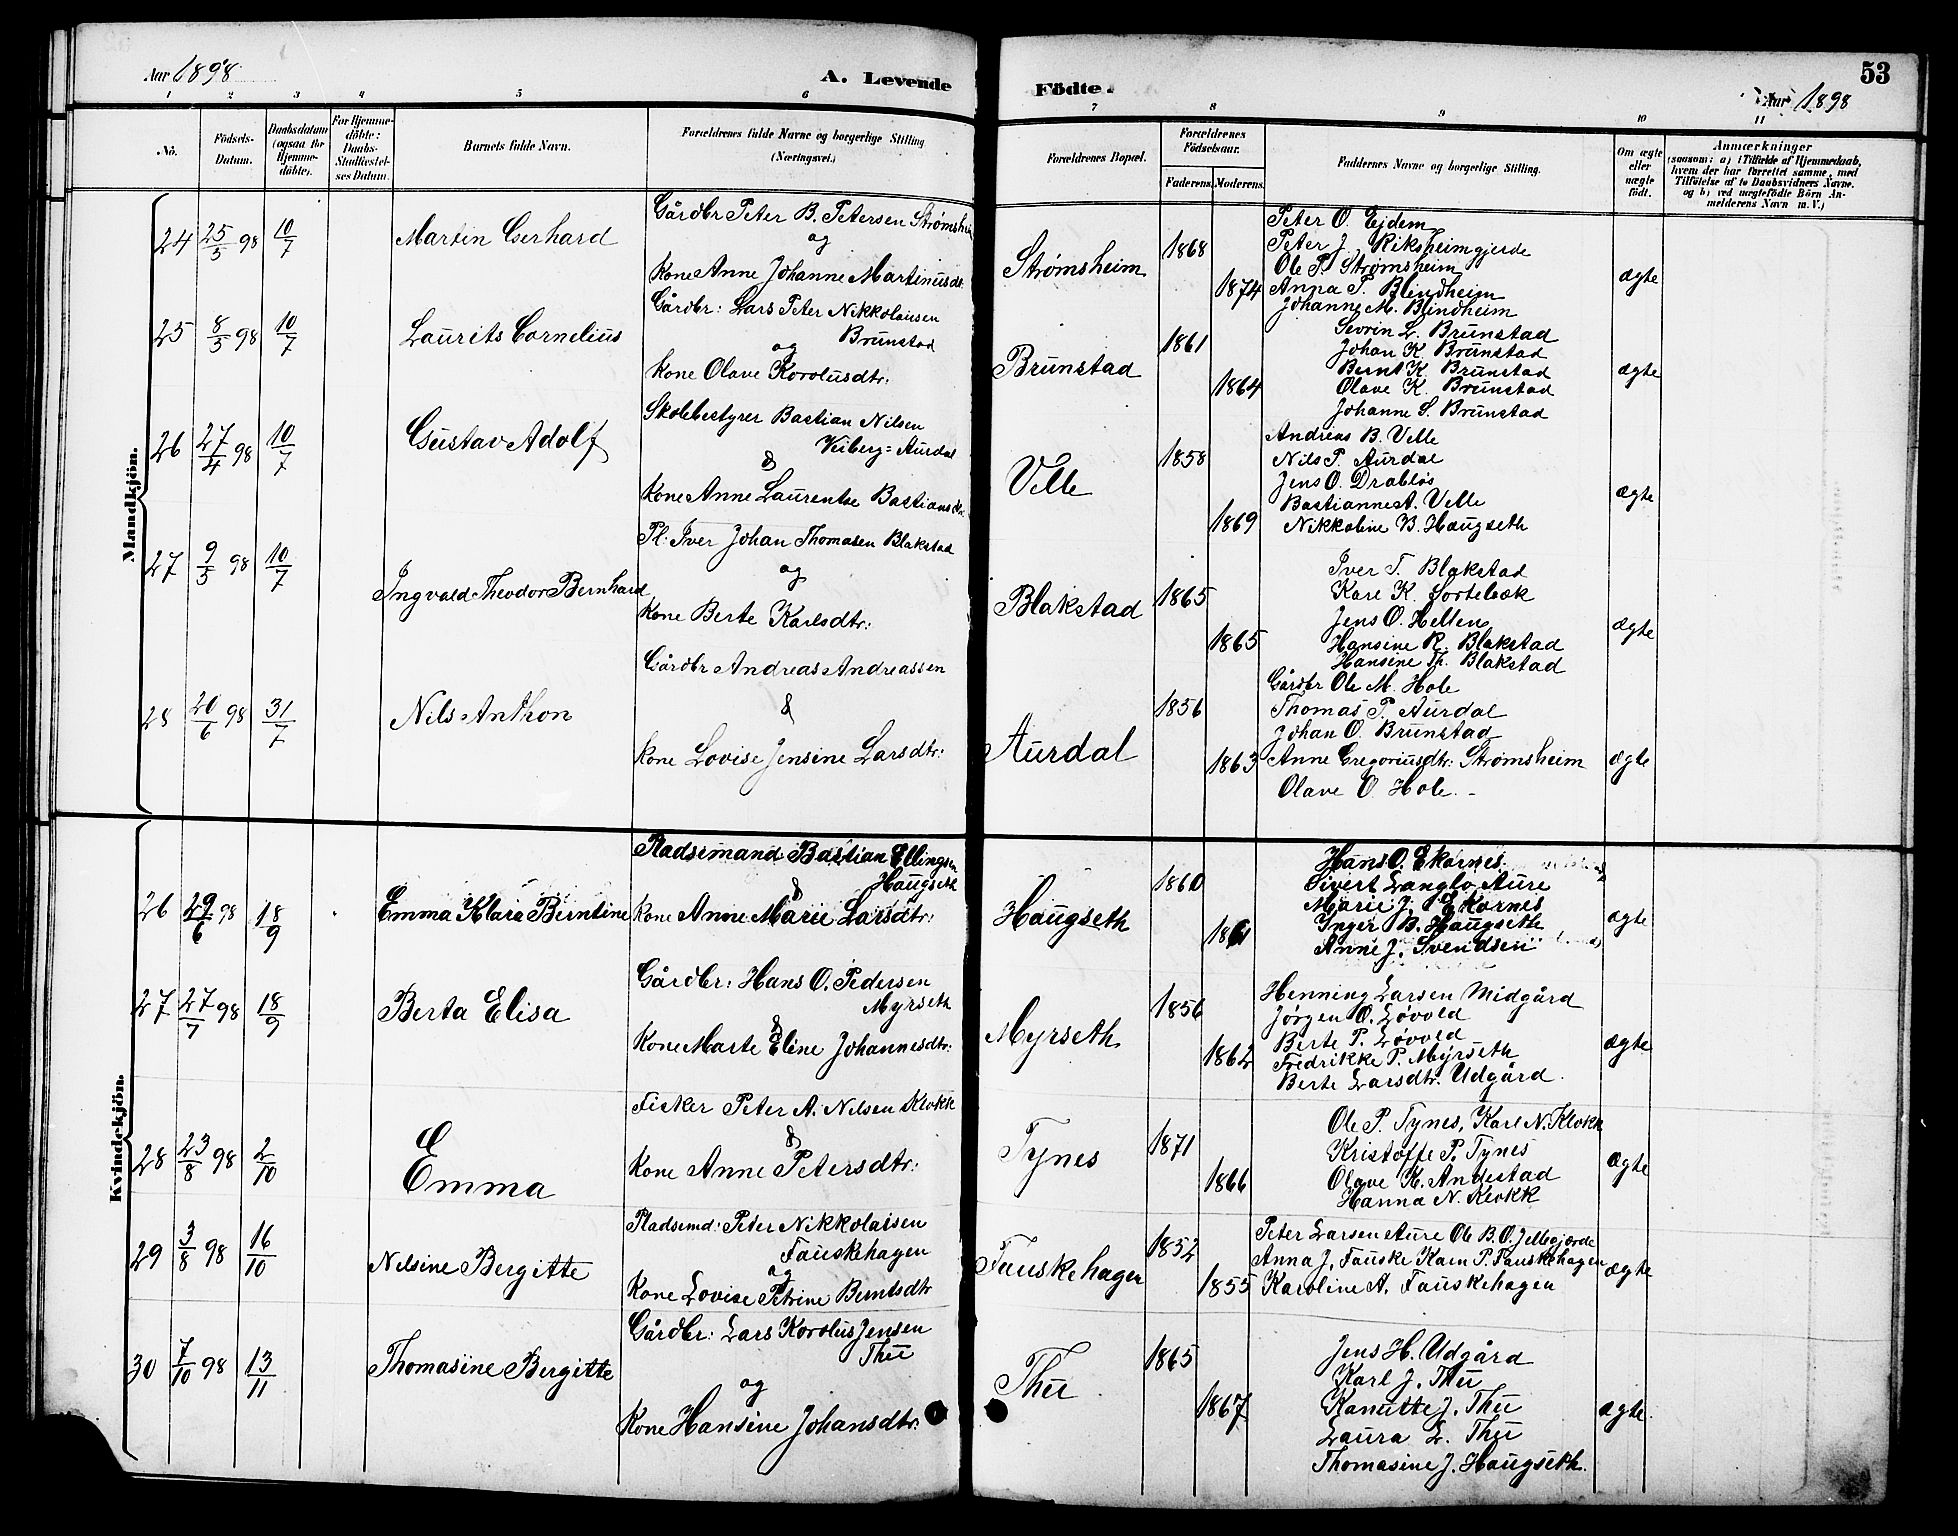 Aar 1898
A. Levende
Födte.
53
Aar 1898
1 2 3 4 5 6 7 8 9 10 11
No.
Födsels-Datum.
Daabsdatum (ogsaa for Hjemmedöbte).
For Hjemmedöbte: Daabs-Stadfæstelses Datum.
Barnets fulde Navn.
Forældrenes fulde Navne og borgerlige Stilling (Næringsvei.)
Forældrenes Bopæl.
Forældrenes Födselsaar.
Faderens. Moderens.
Faddernes Navne og borgerlige Stilling.
Om ægte eller uægte født.
Anmærkninger
(saasom: a) i Tilfælde af Hjemmedaab, hvem der har forrettet samme, med Tilföielse af to Daabsvidners Navne. og b) ved uægtefödte Börn Anmelderens Navn m. V.)
Mandkjön.
24 25/5 98 10/7 Martin Gerhard
Gårdbr Peter B. Petersen Strømsheim
og
Kone Anne Johanne Martinusdr.
Strømsheim 1868 1874
Peter O. Ejdem
Peter J. Riksheimgjerde
Ole P. Strømsheim
Anna P. Blindheim
Johanne M. Blindheim
ægte
25 8/5 98 10/7 Laurits Cornelius
Gårdbr: Lars Peter Nikkolaisen
Brunstad
og
Kone Olave Korolusdtr:
Brunstad 1861 1864
Sevrin L. Brunstad
Johan K. Brunstad
Bernt K. Brunstad
Olave K. Brunstad
Johanne S. Brunstad
ægte
26 27/4 98 10/7 Gustav Adolf
Skolebestyrer Bastian Nilsen
Viberg=Aurdal
&
Kone Anne Laurentse Bastiansdr.
Velle 1858 1869
Andreas B. Velle
Nils P. Aurdal
Jens O. Drabløs
Bastianne A. Velle
Nikkoline B. Haugseth
ægte
27 9/5 98 10/7 Ingvald Theodor Bernhard
Pl: Iver Johan Thomasen Blakstad
og
Kone Berte Karlsdtr:
Blakstad 1865 1865
Iver T. Blakstad
Karl K. Sortebæk
Jens O. Hellen
Hansine R. Blakstad
Hansine Th. Blakstad
ægte
28 20/6 98 31/7 Nils Anthon
Gårdbr Andreas Andreassen
&
Kone Lovise Jensine Larsdtr:
Aurdal 1856 1863
Gårdbr Ole M. Hole
Thomas P. Aurdal
Johan O. Brunstad
Anne Gregoriusdtr: Strømsheim
Olave O. Hole. -
ægte
Kvindekjön.
26 29/6 98 18/9 Emma Klara Berntine
Pladsemand Bastian Ellingsen
Haugseth
&
Kone Anne Marie Larsdtr:
Haugseth 1860 1861
Hans O. Ekornes
Sivert Langlo, Aure
Marie J. Ekornes
Inger B. Haugseth
Anne J. Svendsen
ægte
27 27/7 98 18/9 Berta Elisa
Gårdbr: Hans O. Pedersen
Myrseth
&
Kone Marte Eline Johannesdtr:
Myrseth 1856 1862
Henning Larsen Midgård
Jørgen O. Løvold
Berte P. Løvold
Fredrikke P. Myrseth
Berte Larsdtr. Udgård.
ægte
28 23/8 98 2/10 Emma
Fisker Peter A. Nilsen Klokk
&
Kone Anne Petersdtr:
Tynes 1871 1866
Ole P. Tynes, Karl N. Klokk
Kristoffe P. Tynes
Olave K. Andestad
Hanna N. Klokk
ægte
29 3/8 98 16/10 Nilsine Bergitte
Pladsemd: Peter Nikkolaisen
Fauskehagen
og
Kone Lovise Petrine Berntsdtr
Fauskehagen 1852 1855
Peter Larsen Aure Ole B. O. Jellegjærde
Anna J. Fauske Karn P. Fauskehagen
Karoline A. Fauskehagen
ægte
30 7/10 98 13/11 Thomasine Bergitte
Gårdbr: Lars Korolus Jensen
Thu
og
Kone Hansine Johansdtr:
Thu 1865 1867
Jens H. Udgård
Karl J. Thu
Kanutte J. Thu
Laura L. Thu
Thomasine J. Haugseth.
ægte.